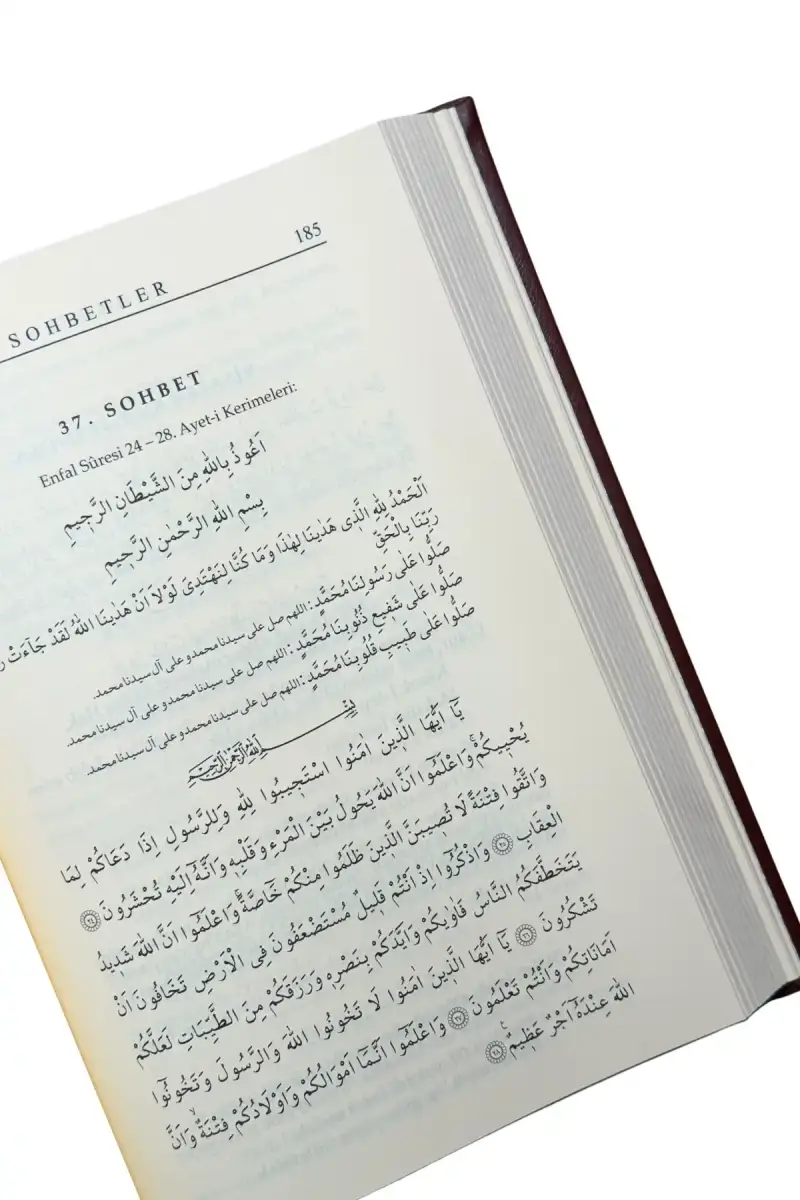 185
SOHBETLER
37. SOHBET
Enfal Sûresi 24 – 28. Ayet-i Kerimeleri:
اَعُوذُ بِاللهِ مِنَ الشَّيْطَانِ الرَّجِيمِ
بِسْمِ اللهِ الرَّحْمٰنِ الرَّحِيمِ
اَلْحَمْدُ لِلّٰهِ الَّذِى هَدٰينَا لِهٰذَا وَمَا كُنَّا لِنَهْتَدِىَ لَوْلاَ اَنْ هَدٰينَا اللهُ لَقَدْ جَاۤءَتْ
رَبِّنَا بِالْحَقِّ
صَلُّوا عَلٰى رَسُولِنَا مُحَمَّدٍ : اللهم صل على سيدنا محمد و على آل سيدنا محمد.
صَلُّوا عَلٰى شَفِيعِ ذُنُوبِنَا مُحَمَّدٍ : اللهم صل على سيدنا محمد و على آل سيدنا محمد.
صَلُّوا عَلٰى طَبِيبِ قُلُوبِنَا مُحَمَّدٍ : اللهم صل على سيدنا محمد و على آل سيدنا محمد.
بِسْمِ اللهِ الرَّحْمٰنِ الرَّحِيمِ
يَاۤ اَيُّهَا الَّذِينَ اٰمَنُوا اسْتَجِيبُوا لِلّٰهِ وَلِلرَّسُولِ اِذَا دَعَاكُمْ لِمَا
يُحْيِيكُمْۚ وَاعْلَمُوا اَنَّ اللهَ يَحُولُ بَيْنَ الْمَرْءِ وَقَلْبِهِ وَاَنَّهُ اِلَيْهِ تُحْشَرُونَ ﴿٢٤﴾
وَاتَّقُوا فِتْنَةً لَا تُصِيبَنَّ الَّذِينَ ظَلَمُوا مِنْكُمْ خَاصَّةًۚ وَاعْلَمُوا اَنَّ اللهَ شَدِيدُ
الْعِقَابِ ﴿٢٥﴾ وَاذْكُرُوا اِذْ اَنْتُمْ قَلِيلٌ مُسْتَضْعَفُونَ فِى الْاَرْضِ تَخَافُونَ اَنْ
يَتَخَطَّفَكُمُ النَّاسُ فَاٰوٰيكُمْ وَاَيَّدَكُمْ بِنَصْرِهِ وَرَزَقَكُمْ مِنَ الطَّيِّبَاتِ لَعَلَّكُمْ
تَشْكُرُونَ ﴿٢٦﴾ يَاۤ اَيُّهَا الَّذِينَ اٰمَنُوا لَا تَخُونُوا اللهَ وَالرَّسُولَ وَتَخُونُوۤا
اَمَانَاتِكُمْ وَاَنْتُمْ تَعْلَمُونَ ﴿٢٧﴾ وَاعْلَمُوۤا اَنَّمَاۤ اَمْوَالُكُمْ وَاَوْلَادُكُمْ فِتْنَةٌۙ وَاَنَّ
اللهَ عِنْدَهُۤ اَجْرٌ عَظِيمٌ ﴿٢٨﴾